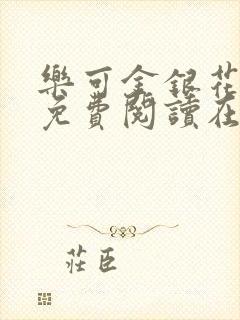 樂可金銀花
免費閱讀在
莊臣